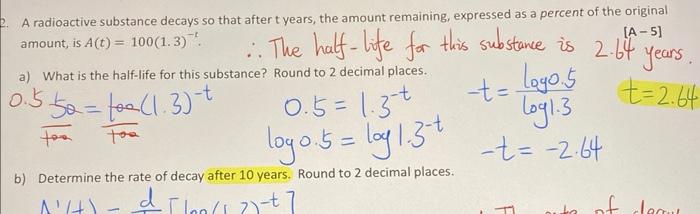 2. A radioactive substance decays so that after t years, the amount remaining, expressed as a percent of the original
amount, is A(t) = 100(1.3)^-t.
[A – 5]
∴ The half-life for this substance is 2.64 years.
a) What is the half-life for this substance? Round to 2 decimal places.
0.5 50 = 100(1.3)^-t
100 100
0.5 = 1.3^-t
log0.5 = log1.3^-t
-t = log0.5 / log1.3
-t = -2.64
t = 2.64
b) Determine the rate of decay after 10 years. Round to 2 decimal places.
A'(t) = d [100(1.3)^-t]
of decay